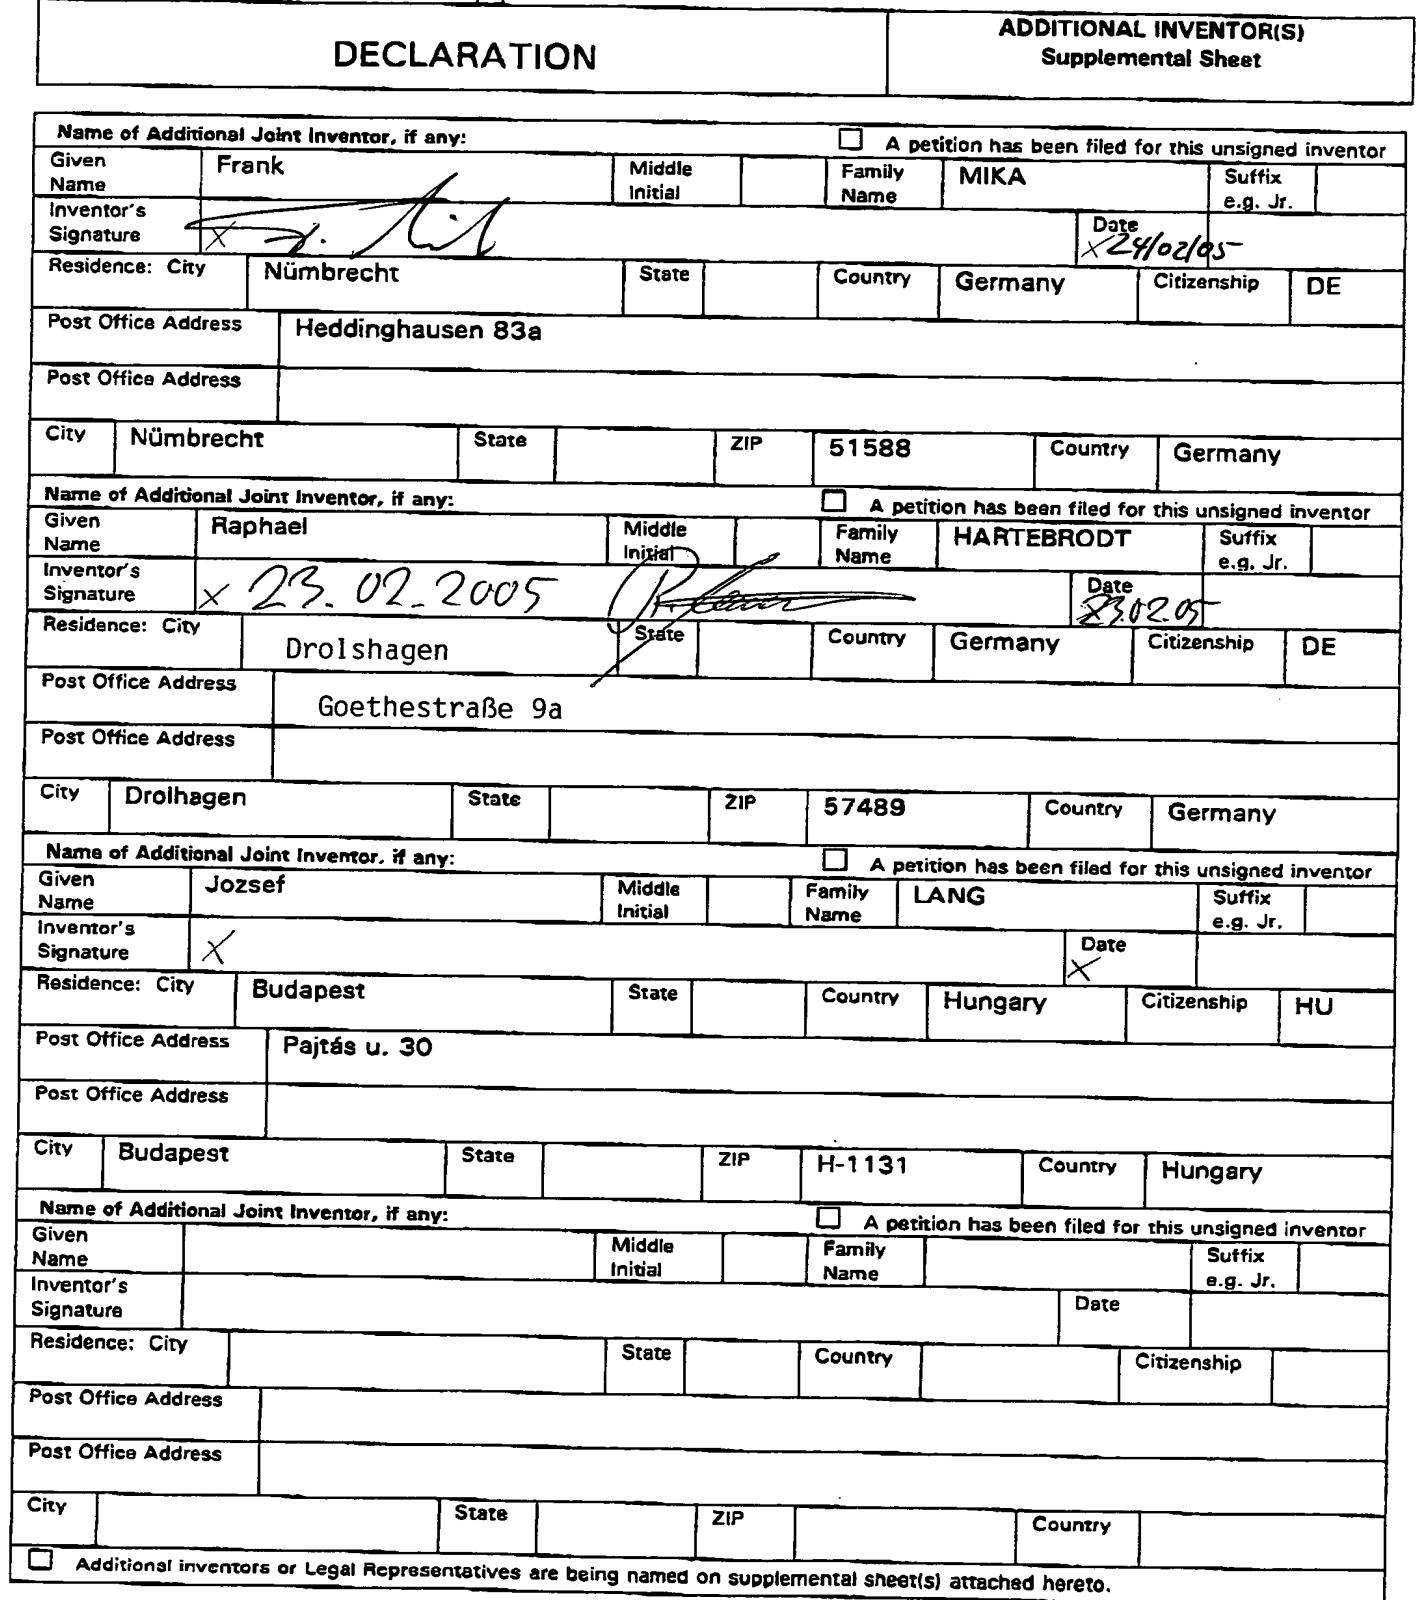 DECLARATION
ADDITIONAL INVENTOR(S)
Supplemental Sheet
Name of Additional Joint Inventor, if any: A petition has been filed for this unsigned inventor
Given Name Frank Middle Initial Family Name MIKA Suffix e.g. Jr.
Inventor's Signature X Date X 24/02/05
Residence: City Nümbrecht State Country Germany Citizenship DE
Post Office Address Heddinghausen 83a
Post Office Address
City Nümbrecht State ZIP 51588 Country Germany
Name of Additional Joint Inventor, if any: A petition has been filed for this unsigned inventor
Given Name Raphael Middle Initial Family Name HARTEBRODT Suffix e.g. Jr.
Inventor's Signature X 23.02.2005 Date X 23.02.05
Residence: City Drolshagen State Country Germany Citizenship DE
Post Office Address Goethestraße 9a
Post Office Address
City Drolhagen State ZIP 57489 Country Germany
Name of Additional Joint Inventor, if any: A petition has been filed for this unsigned inventor
Given Name Jozsef Middle Initial Family Name LANG Suffix e.g. Jr.
Inventor's Signature X Date X
Residence: City Budapest State Country Hungary Citizenship HU
Post Office Address Pajtás u. 30
Post Office Address
City Budapest State ZIP H-1131 Country Hungary
Name of Additional Joint Inventor, if any: A petition has been filed for this unsigned inventor
Given Name Middle Initial Family Name Suffix e.g. Jr.
Inventor's Signature Date
Residence: City State Country Citizenship
Post Office Address
Post Office Address
City State ZIP Country
Additional inventors or Legal Representatives are being named on supplemental sheet(s) attached hereto.